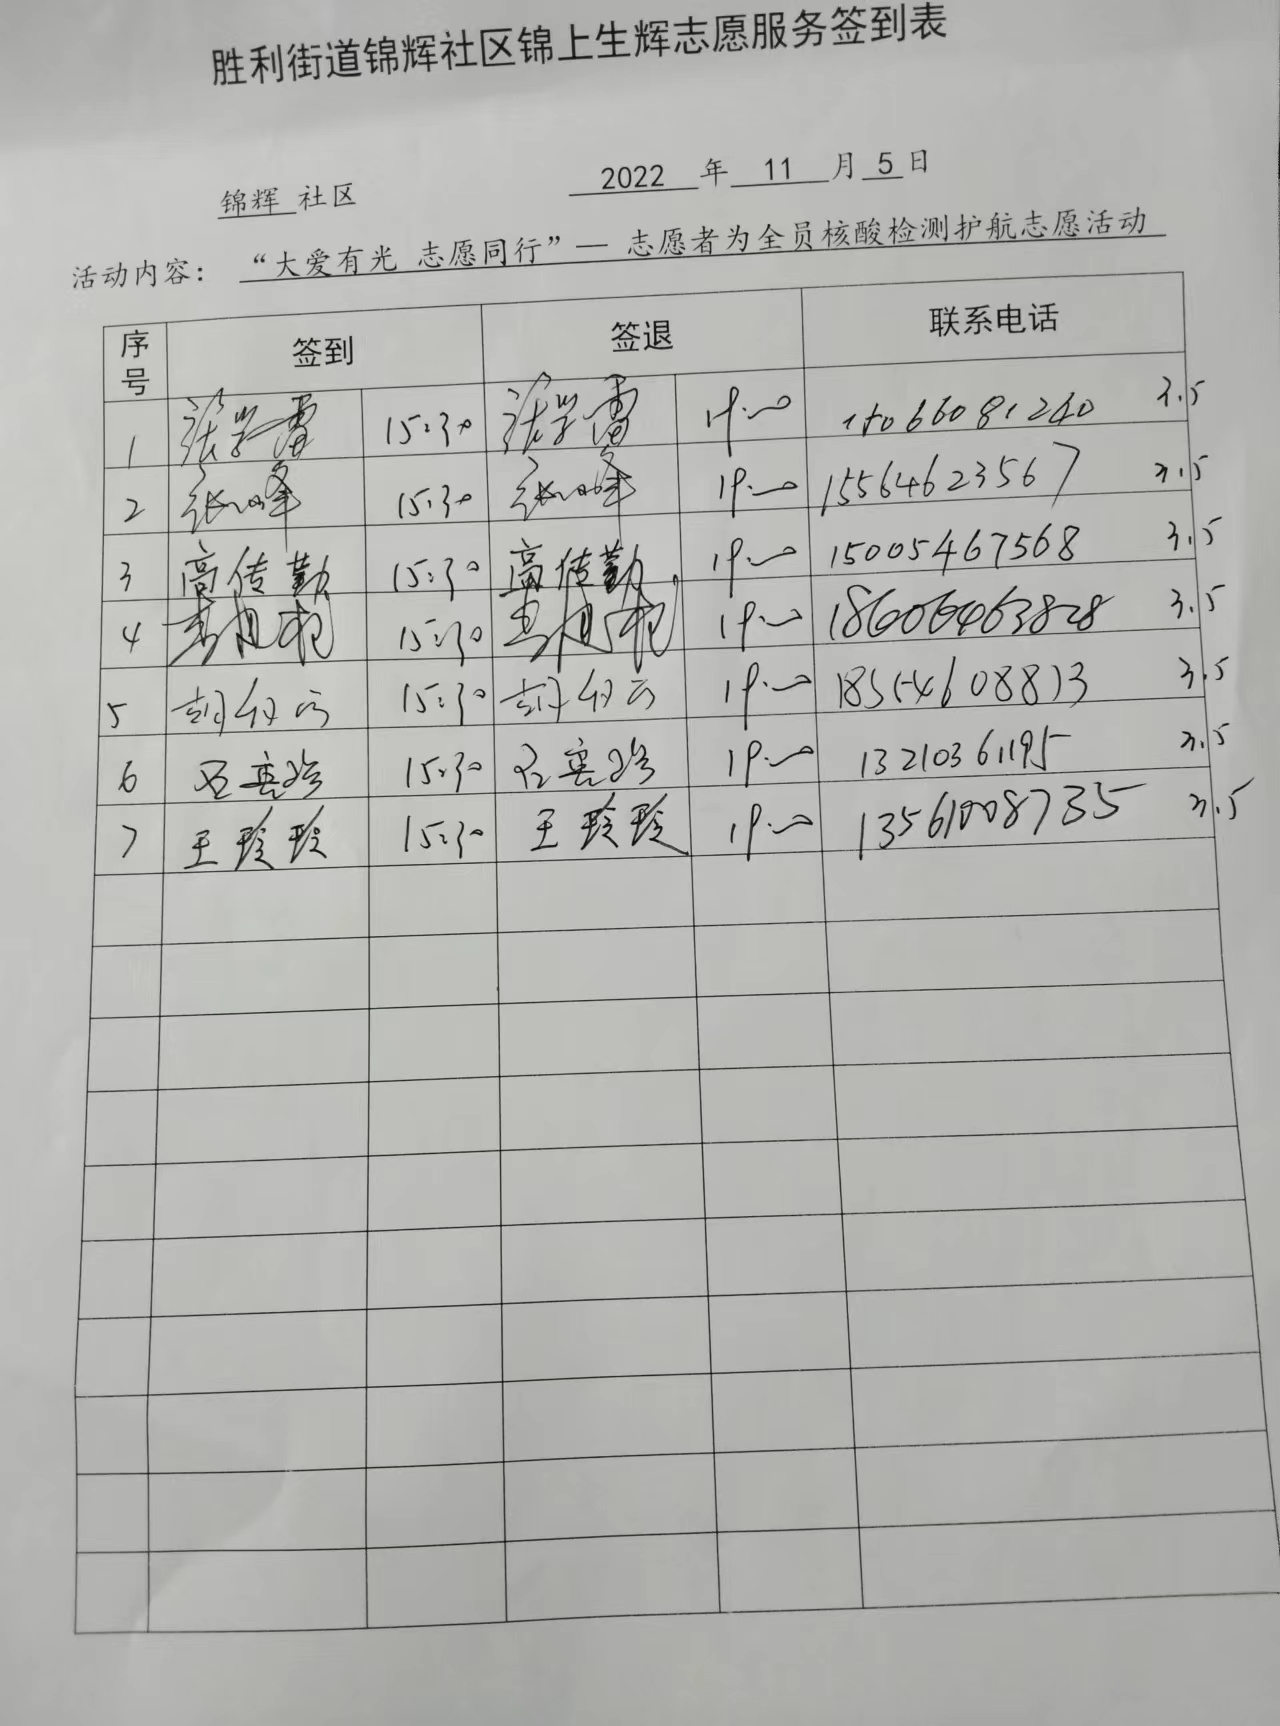 胜利街道锦辉社区锦上生辉志愿服务签到表
锦辉 社区 2022 年 11 月 5 日
活动内容： “大爱有光 志愿同行”— 志愿者为全员核酸检测护航志愿活动
序号 签到 签退 联系电话
1 张学雷 15:30 张学雷 19:00 3.5
2 15:30 19:00 15564623567 3.5
3 高传勤 15:30 高传勤 19:00 15005467568 3.5
4 15:30 19:00 18606463828 3.5
5 15:30 19:00 18554608813 3.5
6 15:30 19:00 13210361195 3.5
7 王玲玲 15:30 王玲玲 19:00 13561008735 3.5